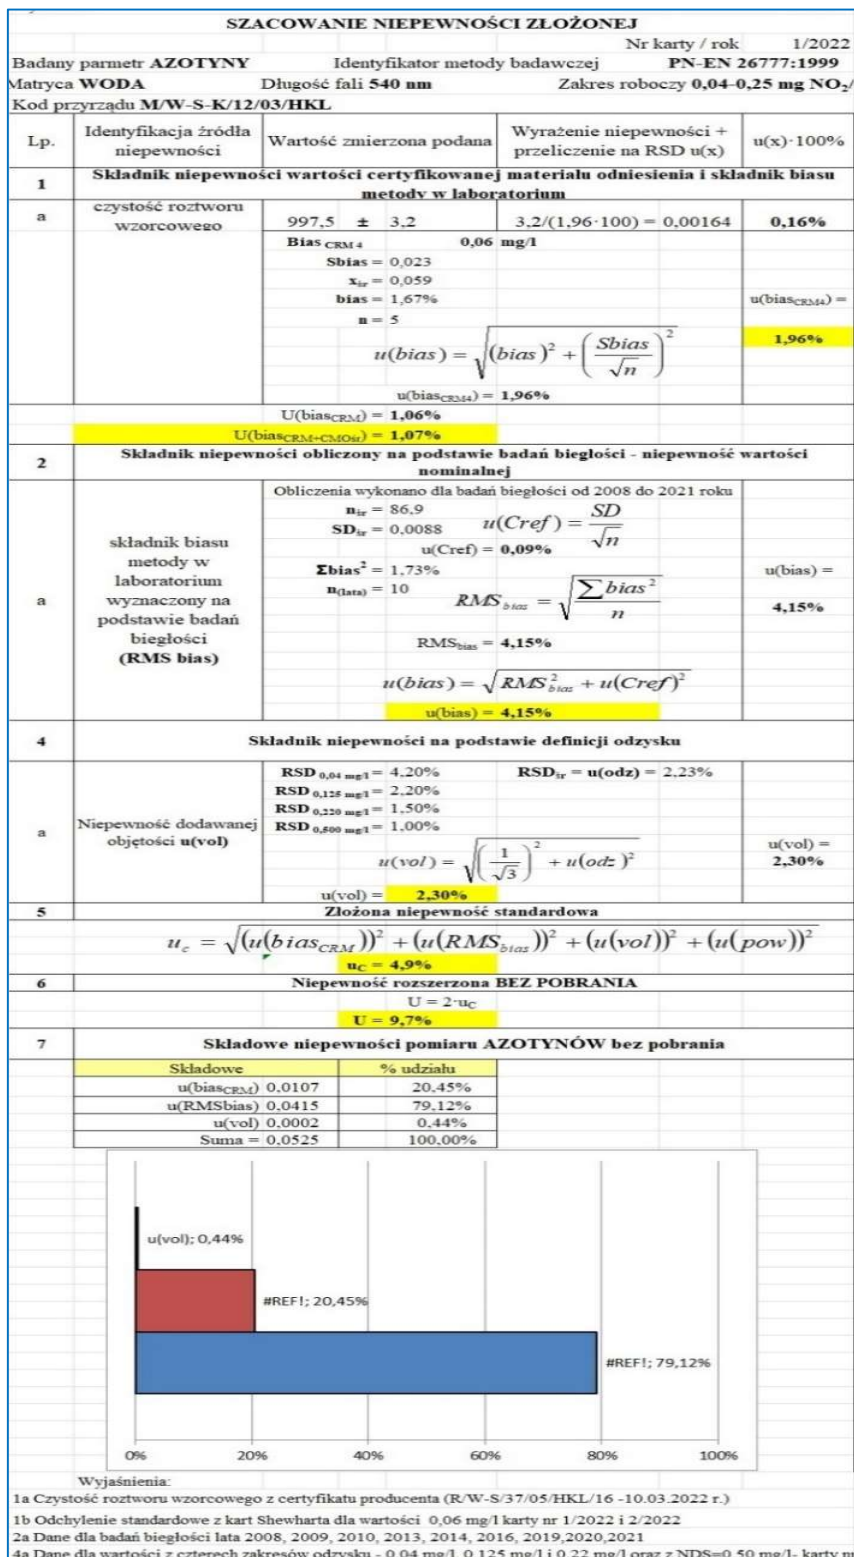 SZACOWANIE NIEPEWNOŚCI ZŁOŻONEJ
Nr karty / rok 1/2022
Badany parmetr AZOTYNY Identyfikator metody badawczej PN-EN 26777:1999
Matryca WODA Długość fali 540 nm Zakres roboczy 0,04-0,25 mg NO₂/
Kod przyrządu M/W-S-K/12/03/HKL
Lp. Identyfikacja źródła niepewności Wartość zmierzona podana Wyrażenie niepewności + przeliczenie na RSD u(x) u(x)·100%
1 Składnik niepewności wartości certyfikowanej materiału odniesienia i składnik biasu
metody w laboratorium
a czystość roztworu wzorcowego 997,5 ± 3,2 3,2/(1,96·100) = 0,00164 0,16%
Bias CRM 4 0,06 mg/l
Sbias = 0,023
x śr = 0,059
bias = 1,67% u(biasCRM4) =
n = 5
1,96%
u(bias) = √((bias)² + (Sbias/√n)²)
u(biasCRM4) = 1,96%
U(biasCRM) = 1,06%
U(biasCRM+CMOśr) = 1,07%
2 Składnik niepewności obliczony na podstawie badań biegłości - niepewność wartości
nominalnej
Obliczenia wykonano dla badań biegłości od 2008 do 2021 roku
n śr = 86,9
SD śr = 0,0088 u(Cref) = SD/√n
u(Cref) = 0,09%
a składnik biasu metody w laboratorium wyznaczony na podstawie badań biegłości (RMS bias)
Σbias² = 1,73% u(bias) =
n(lata) = 10 RMS bias = √(∑bias²/n) 4,15%
RMSbias = 4,15%
u(bias) = √(RMS²bias + u(Cref)²)
u(bias) = 4,15%
4 Składnik niepewności na podstawie definicji odzysku
RSD 0,04 mg/l = 4,20% RSDśr = u(odz) = 2,23%
RSD 0,125 mg/l = 2,20%
RSD 0,220 mg/l = 1,50%
a Niepewność dodawanej objętości u(vol) RSD 0,500 mg/l = 1,00%
u(vol) = √((1/√3)² + u(odz)²) u(vol) = 2,30%
u(vol) = 2,30%
5 Złożona niepewność standardowa
u c = √((u(bias CRM))² + (u(RMS bias))² + (u(vol))² + (u(pow))²)
uC = 4,9%
6 Niepewność rozszerzona BEZ POBRANIA
U = 2·uC
U = 9,7%
7 Składowe niepewności pomiaru AZOTYNÓW bez pobrania
Składowe % udziału
u(biasCRM) 0,0107 20,45%
u(RMSbias) 0,0415 79,12%
u(vol) 0,0002 0,44%
Suma = 0,0525 100,00%
u(vol); 0,44%
#REF!; 20,45%
#REF!; 79,12%
0% 20% 40% 60% 80% 100%
Wyjaśnienia:
1a Czystość roztworu wzorcowego z certyfikatu producenta (R/W-S/37/05/HKL/16 -10.03.2022 r.)
1b Odchylenie standardowe z kart Shewharta dla wartości 0,06 mg/l karty nr 1/2022 i 2/2022
2a Dane dla badań biegłości lata 2008, 2009, 2010, 2013, 2014, 2016, 2019,2020,2021
4a Dane dla wartości z czterech zakresów odzysku - 0,04 mg/l, 0,125 mg/l i 0,22 mg/l oraz z NDS=0,50 mg/l- karty nr